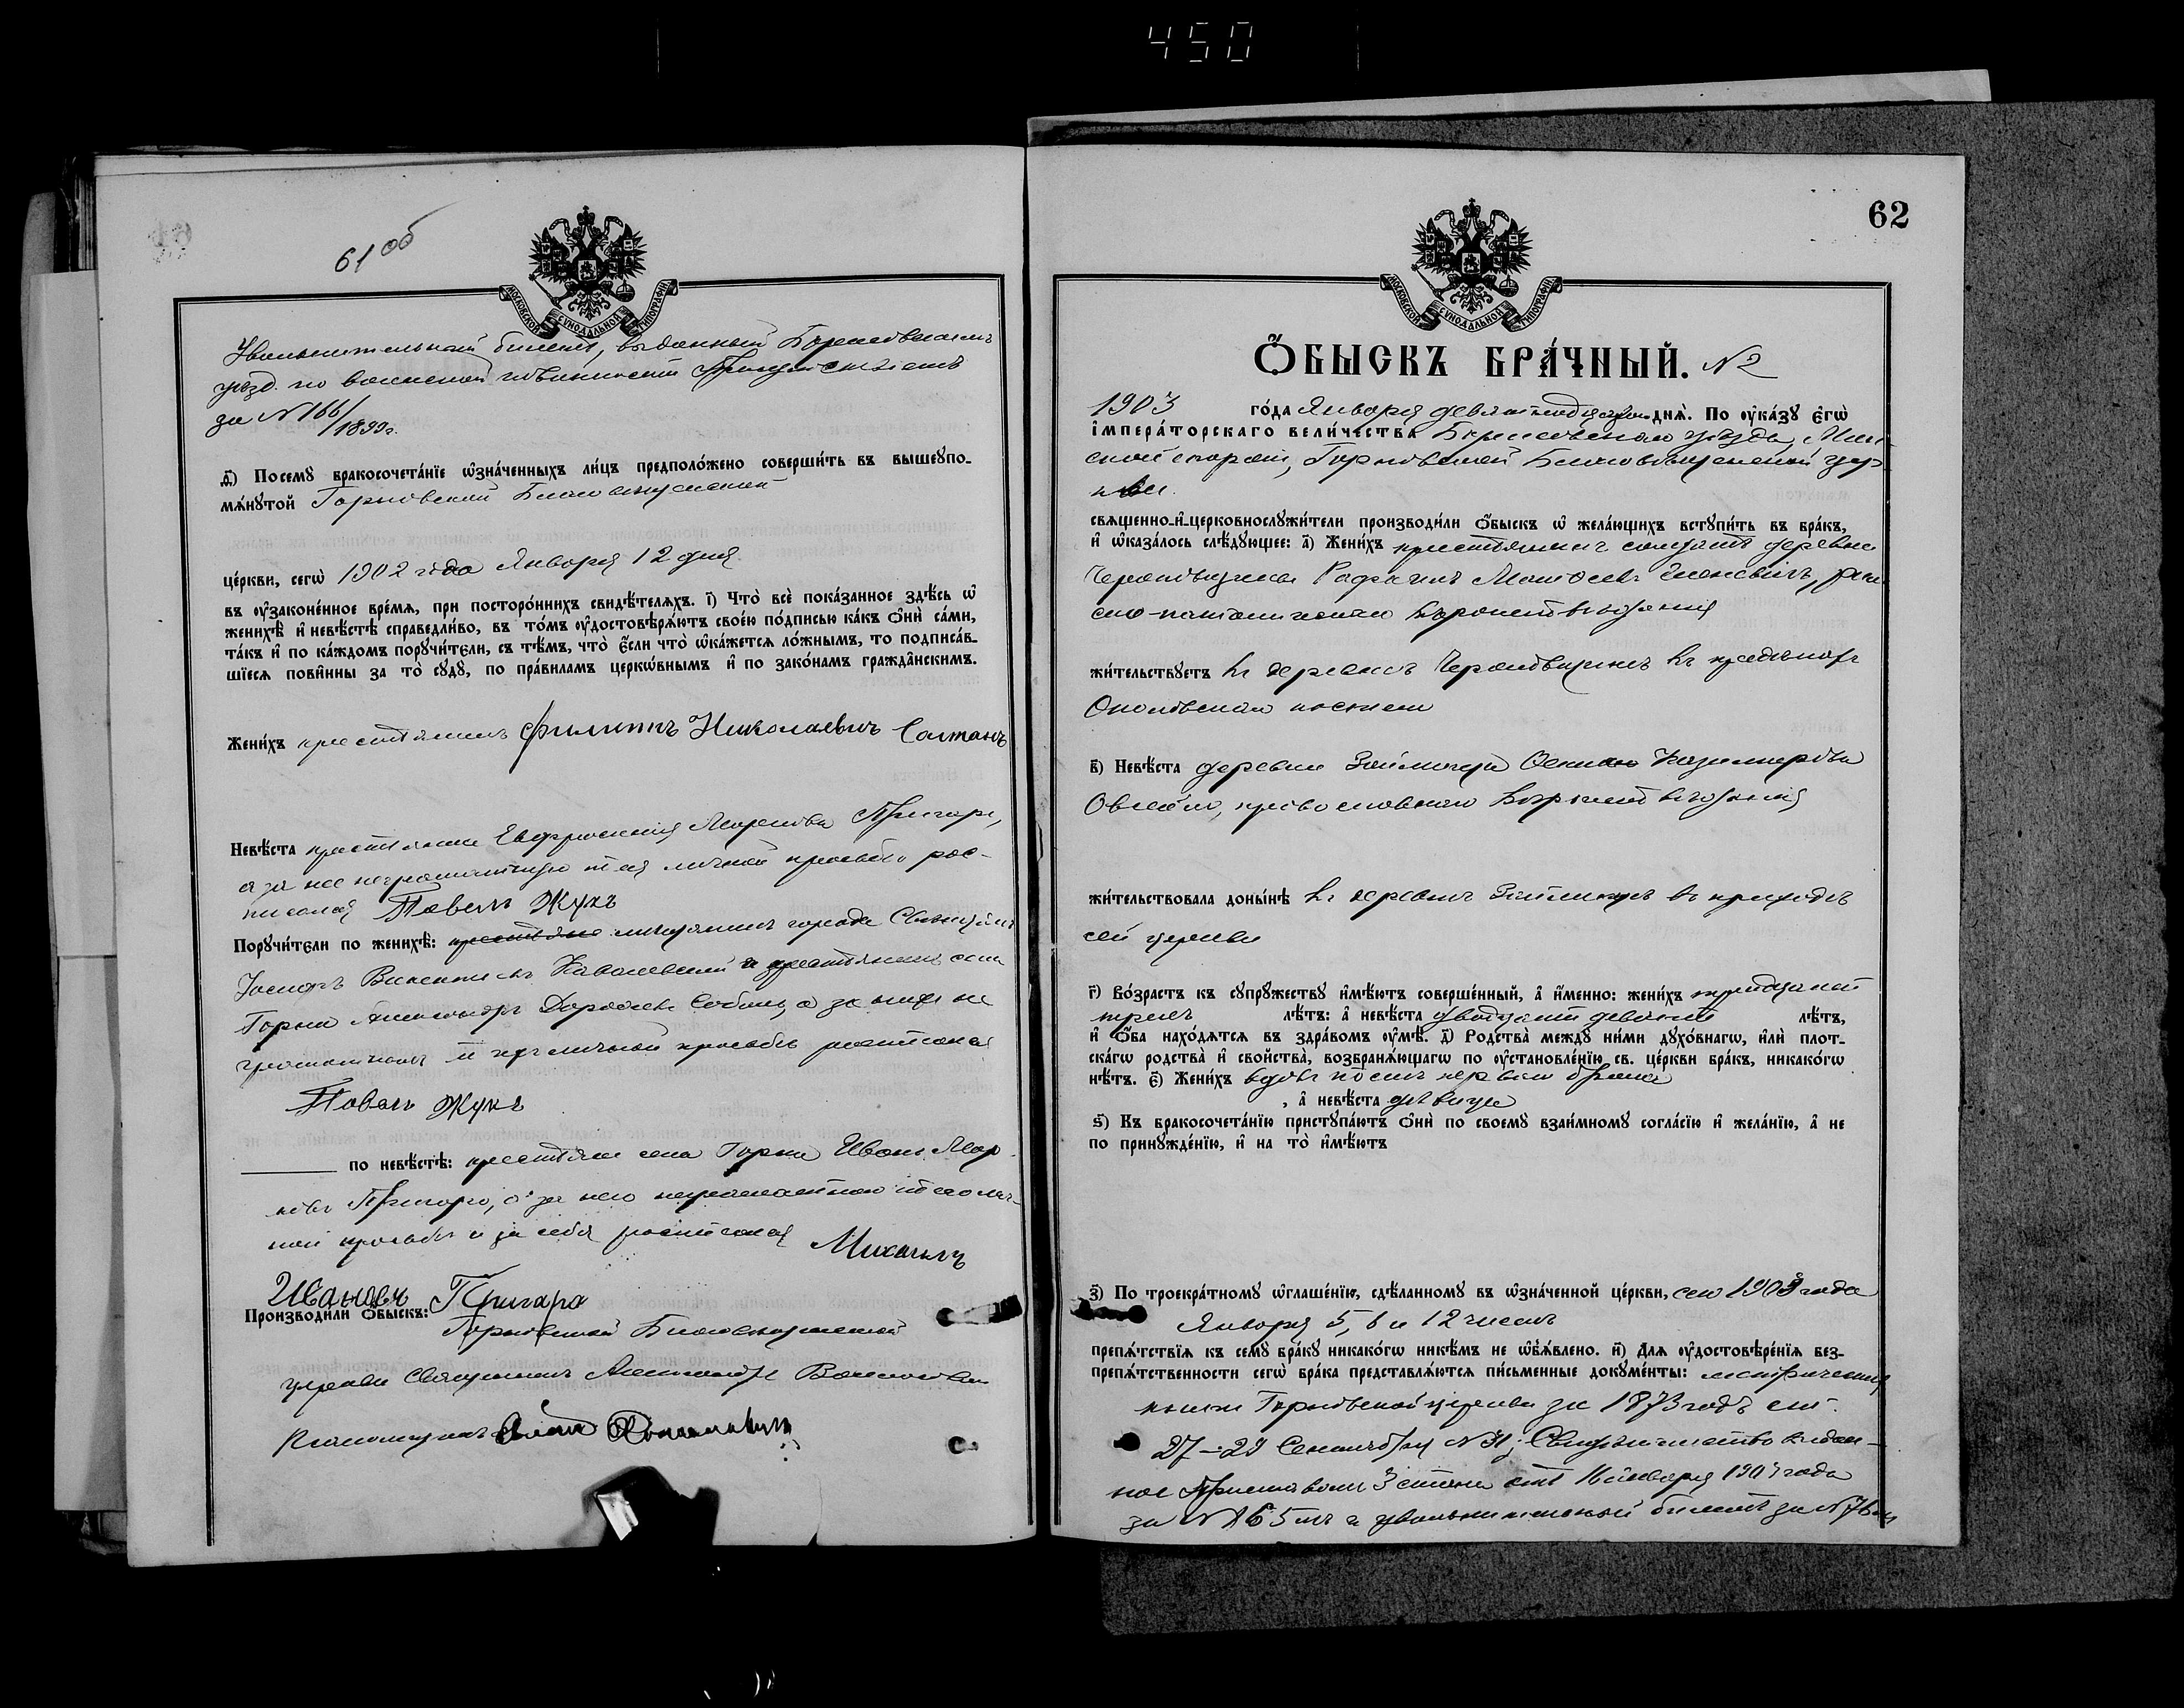 450
61 об
МОСКОВСКОЙ СѴНОДАЛЬНОЙ ТИПОГРАФІИ
Увольнительный билетъ, выданный Борисовскимъ
уѣзд. по воинской повинности Присутствіемъ
за № 166/1899 г.
д҃) Посемꙋ бракосочета́нїе ѡ҆зна́ченныхъ ли́цъ предполо́жено соверши́ть въ вышеꙋпо-
мѧ́нꙋтой Горковской Благовѣщенской
це́ркви, сегѡ̀ 1902 года Января 12 дня
въ ᲂу҆законе́нное вре́мѧ, при посторо́ннихъ свидѣ́телѧхъ. і҃) Что̀ всѐ пока́занное здѣ́сь ѡ҆
женихѣ̀ и҆ невѣ́стѣ справедли́во, въ то́мъ ᲂу҆достовѣрѧ́ютъ свое́ю по́дписью ка́къ ѻ҆нѝ са́ми,
та́къ и҆ по ка́ждомъ порꙋчи́тели, съ тѣ́мъ, что̀ є҆́сли что̀ ѡ҆ка́жетсѧ ло́жнымъ, то подписа́в-
шїесѧ пови́нны за то̀ сꙋдꙋ̀, по пра́виламъ церкѡ́внымъ и҆ по зако́намъ гражда́нскимъ.
Жени́хъ крестьянинъ Филиппъ Николаевичъ Солтанъ
Невѣ́ста крестьянка Евфросинія Маркова Пригара,
а за нее неграмотную по ея личной просьбѣ рос-
писался Павелъ Жукъ
Порꙋчи́тели по женихѣ̀: мѣщанинъ города
Іосифъ Викентьевъ и крестьянинъ села
Горки Александръ а за нихъ не
грамотныхъ по ихъ личной просьбѣ росписался
Павелъ Жукъ
по невѣ́стѣ: крестьяне села Горки Иванъ Мар-
ковъ Пригара, а за него неграмотнаго по его лич-
ной просьбѣ и за себя росписался Михаилъ
Ивановъ Пригара
Производи́ли ѻ҆́быскъ: Горковской Благовѣщенской
церкви Священникъ Александръ
Псаломщикъ
62
МОСКОВСКОЙ СѴНОДАЛЬНОЙ ТИПОГРАФІИ
Ѻ҆́БЫСКЪ БРА́ЧНЫЙ. № 2
1903 го́да Января девятнадцатаго днѧ̀. По ᲂу҆ка́зꙋ є҆гѡ̀
і҆мпера́торскагѡ вели́чества Борисовскаго уѣзда, Мин-
ской епархіи, Горковской Благовѣщенской цер-
кви.
свѧще́нно-и҆-церковнослꙋжи́тели производи́ли ѻ҆́быскъ ѡ҆ жела́ющихъ встꙋпи́ть въ бра́къ,
и҆ ѡ҆каза́лось слѣ́дꙋющее: а҃) Жени́хъ крестьянинъ солдатъ деревни
рим-
ско-католическаго вѣроисповѣданія
жи́тельствꙋетъ въ деревнѣ въ предѣлахъ
костела
в҃) Невѣ́ста деревни Казимірова
православнаго вѣроисповѣданія
жи́тельствовала доны́нѣ въ деревнѣ въ приходѣ
сей церкви
г҃) Во́зрастъ къ сꙋпрꙋ́жествꙋ и҆мѣ́ютъ соверше́нный, а҆ и҆́менно: жени́хъ тридцати
трехъ лѣ́тъ: а҆ невѣ́ста двадцати девяти лѣ́тъ,
и҆ ѻ҆́ба нахо́дѧтсѧ въ здра́вомъ ᲂу҆мѣ̀. д҃) Родства̀ междꙋ ни́ми дꙋхо́внагѡ, и҆лѝ плот-
ска́гѡ родства̀ и҆ сво́йства̀, возбранѧ́ющагѡ по ᲂу҆становле́нїю св. це́ркви бра́къ, никако́гѡ
нѣ́тъ. є҃) Жени́хъ вдовъ послѣ перваго брака
, а҆ невѣ́ста дѣвица
ѕ҃) Къ бракосочета́нїю пристꙋпа́ютъ ѻ҆нѝ по своемꙋ̀ взаи́мномꙋ согла́сїю и҆ жела́нїю, а҆ не
по принꙋжде́нїю, и҆ на то̀ и҆мѣ́ютъ
з҃) По троекра́тномꙋ ѡ҆глаше́нїю, сдѣ́ланномꙋ въ ѡ҆зна́ченной це́ркви, сего 1903 года
Января 5, 6 и 12 чиселъ
препѧ́тствїѧ къ семꙋ̀ бра́кꙋ никако́гѡ никѣ́мъ не ѡ҆б̾ѧ́влено. и҃) Длѧ ᲂу҆достовѣре́нїѧ без-
препѧ́тственности сегѡ̀ бра́ка представлѧ́ютсѧ пи́сьменные докꙋме́нты: метрическія
книги Горковской церкви за 1873 годъ ст.
27—29 Сентября № 31; Свидѣтельство выдан-
ное Приставомъ 3 стана отъ 16 января 1903 года
за № 165 и увольнительный билетъ за №